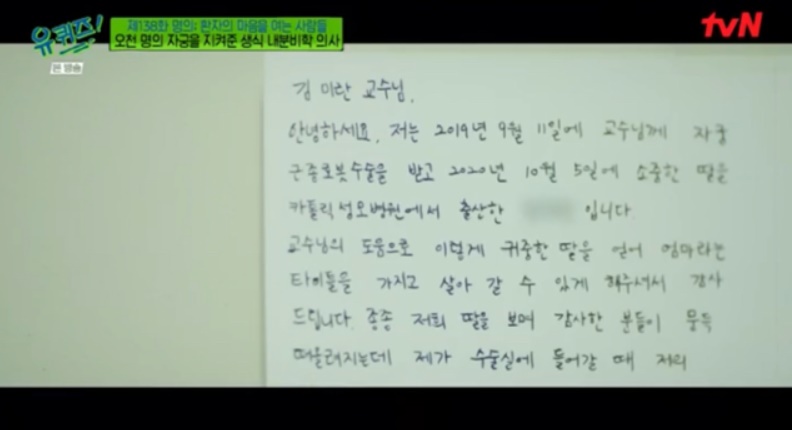 유퀴즈!
본 방송
제138화 명의: 환자의 마음을 여는 사람들
오천 명의 자궁을 지켜준 생식 내분비학 의사
tvN
김미란 교수님,
안녕하세요, 저는 2019년 9월 11일에 교수님께 자궁
근종로봇수술을 받고 2020년 10월 5일에 소중한 딸을
카톨릭성모병원에서 출산한 입니다.
교수님의 도움으로 이렇게 귀중한 딸을 얻어 엄마라는
타이틀을 가지고 살아 갈 수 있게 해주셔서 감사
드립니다. 종종 저희 딸을 보며 감사한 분들이 문득
떠올려지는데 제가 수술실에 들어갈 때 저의